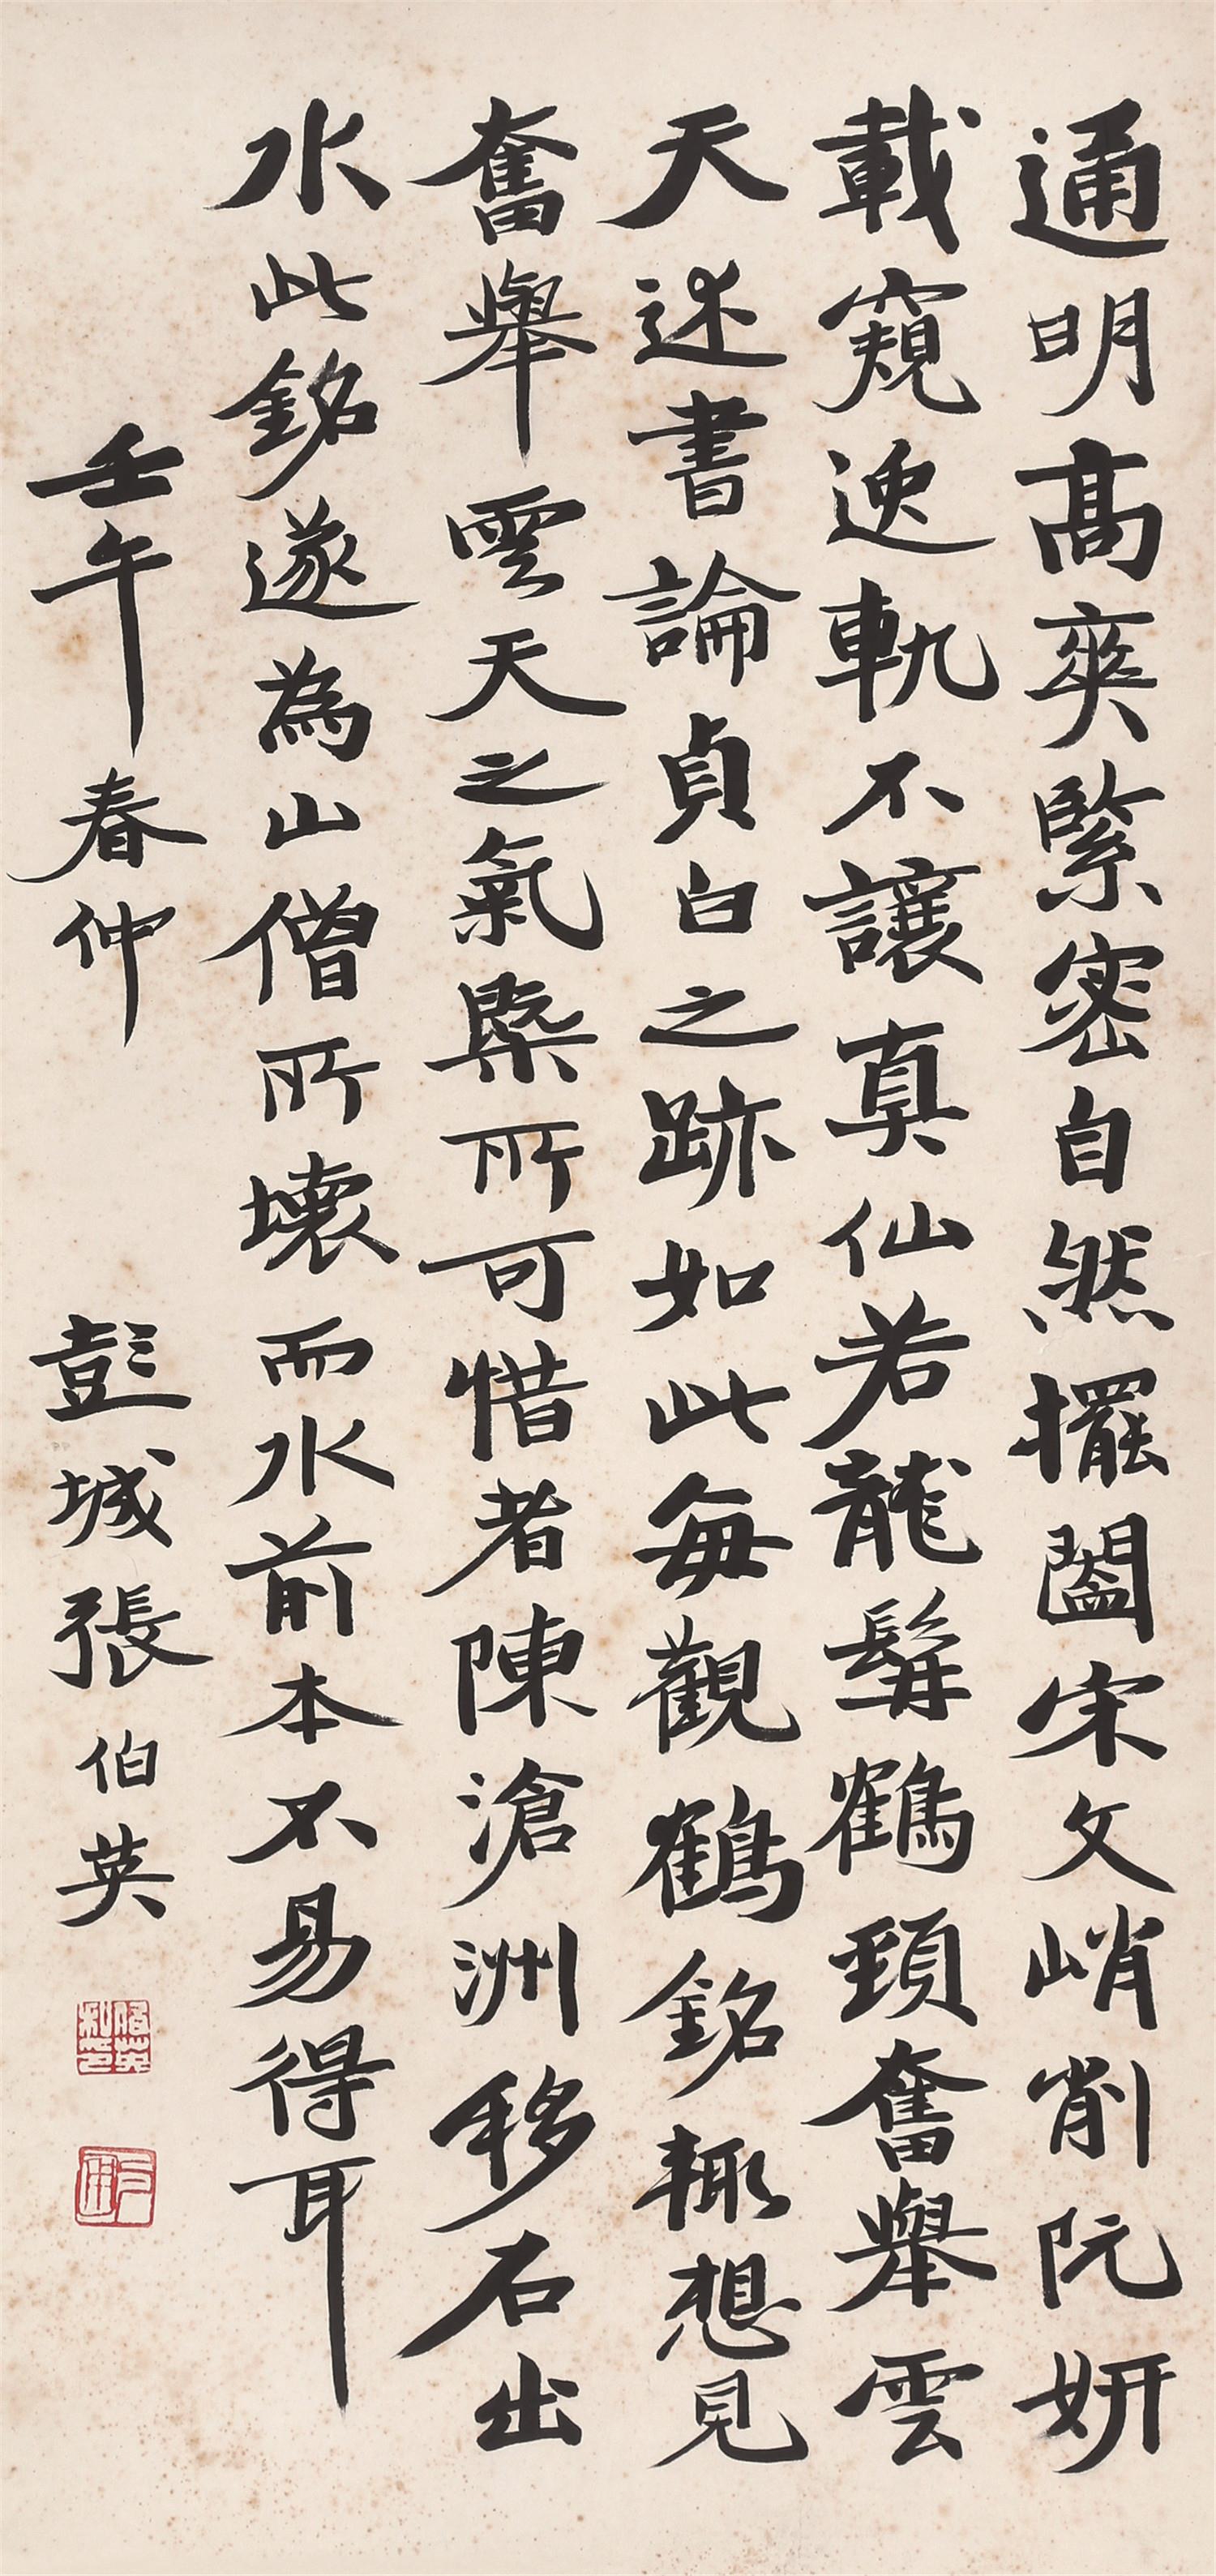 通明高爽緊密自然擺闔宋文峭削阮妍
載窺逸軌不讓真仙若龍髯鶴頸奮舉雲
天述書論貞白之跡如此每觀鶴銘輒想見
奮舉雲天之氣槩所可惜者陳滄洲移石出
水此銘遂為山僧所壞而水前本不易得耳
壬午春仲
彭城張伯英